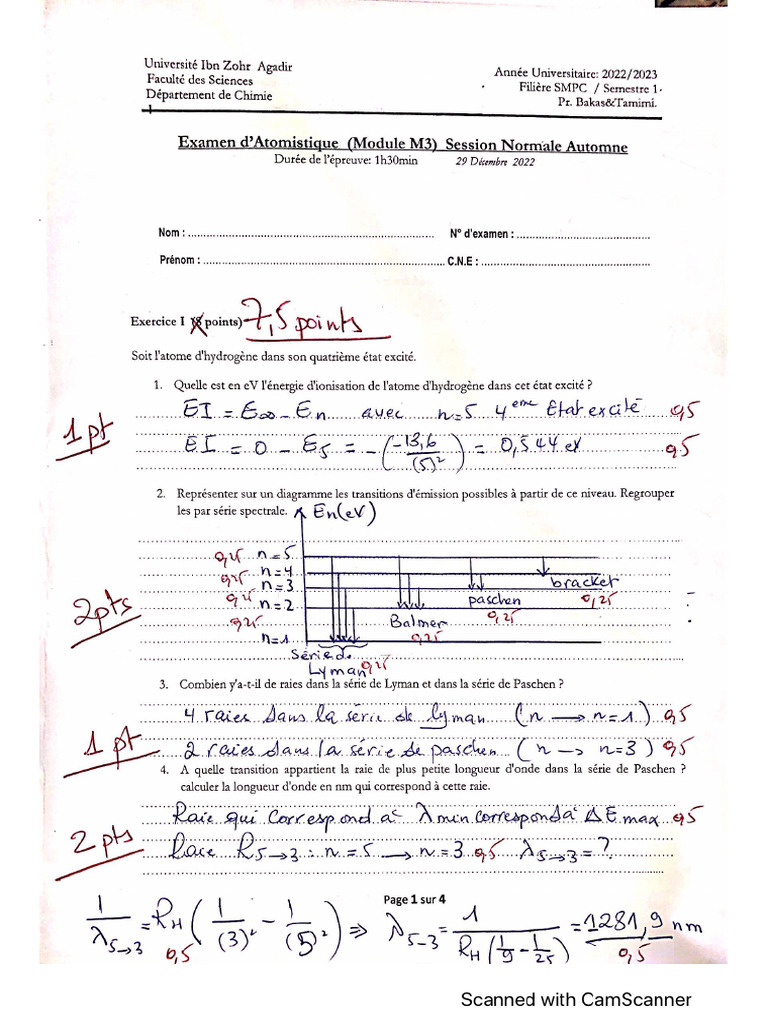 Université Ibn Zohr Agadir
Faculté des Sciences
Département de Chimie
Année Universitaire: 2022/2023
Filière SMPC / Semestre 1.
Pr. Bakas&Tamimi.
Examen d'Atomistique (Module M3) Session Normale Automne
Durée de l'épreuve: 1h30min 29 Décembre 2022
Nom : ........ N° d'examen : ........
Prénom : ........ C.N.E : ........
Exercice I (8 points) 7,5 points
Soit l'atome d'hydrogène dans son quatrième état excité.
1. Quelle est en eV l'énergie d'ionisation de l'atome d'hydrogène dans cet état excité ?
EI = E∞ - En avec n=5 4eme Etat excité 0,5
1 pt
EI = 0 - E5 = -(-13,6/(5)²) = 0,544 eV 0,5
2. Représenter sur un diagramme les transitions d'émission possibles à partir de ce niveau. Regrouper
les par série spectrale.
En(eV)
0,25 n=5
0,25 n=4
bracket
0,25 n=3
paschen 0,25
0,25 n=2
0,25
2pts
Balmer
0,25 n=1
0,25
Série de
Lyman 0,25
3. Combien y'a-t-il de raies dans la série de Lyman et dans la série de Paschen ?
4 raies dans la série de Lyman (n → n=1) 0,5
1 pt
2 raies dans la série de paschen (n → n=3) 0,5
4. A quelle transition appartient la raie de plus petite longueur d'onde dans la série de Paschen ?
calculer la longueur d'onde en nm qui correspond à cette raie.
Raie qui correspond à λ min correspond à ΔE max 0,5
2 pts
R5→3 : n=5 → n=3 0,5 λ5→3 = ?
Page 1 sur 4
1/λ5→3 = RH (1/(3)² - 1/(5)²) ⇒ λ5-3 = 1/(RH(1/9 - 1/25)) = 1281,9 nm
0,5 0,5
Scanned with CamScanner